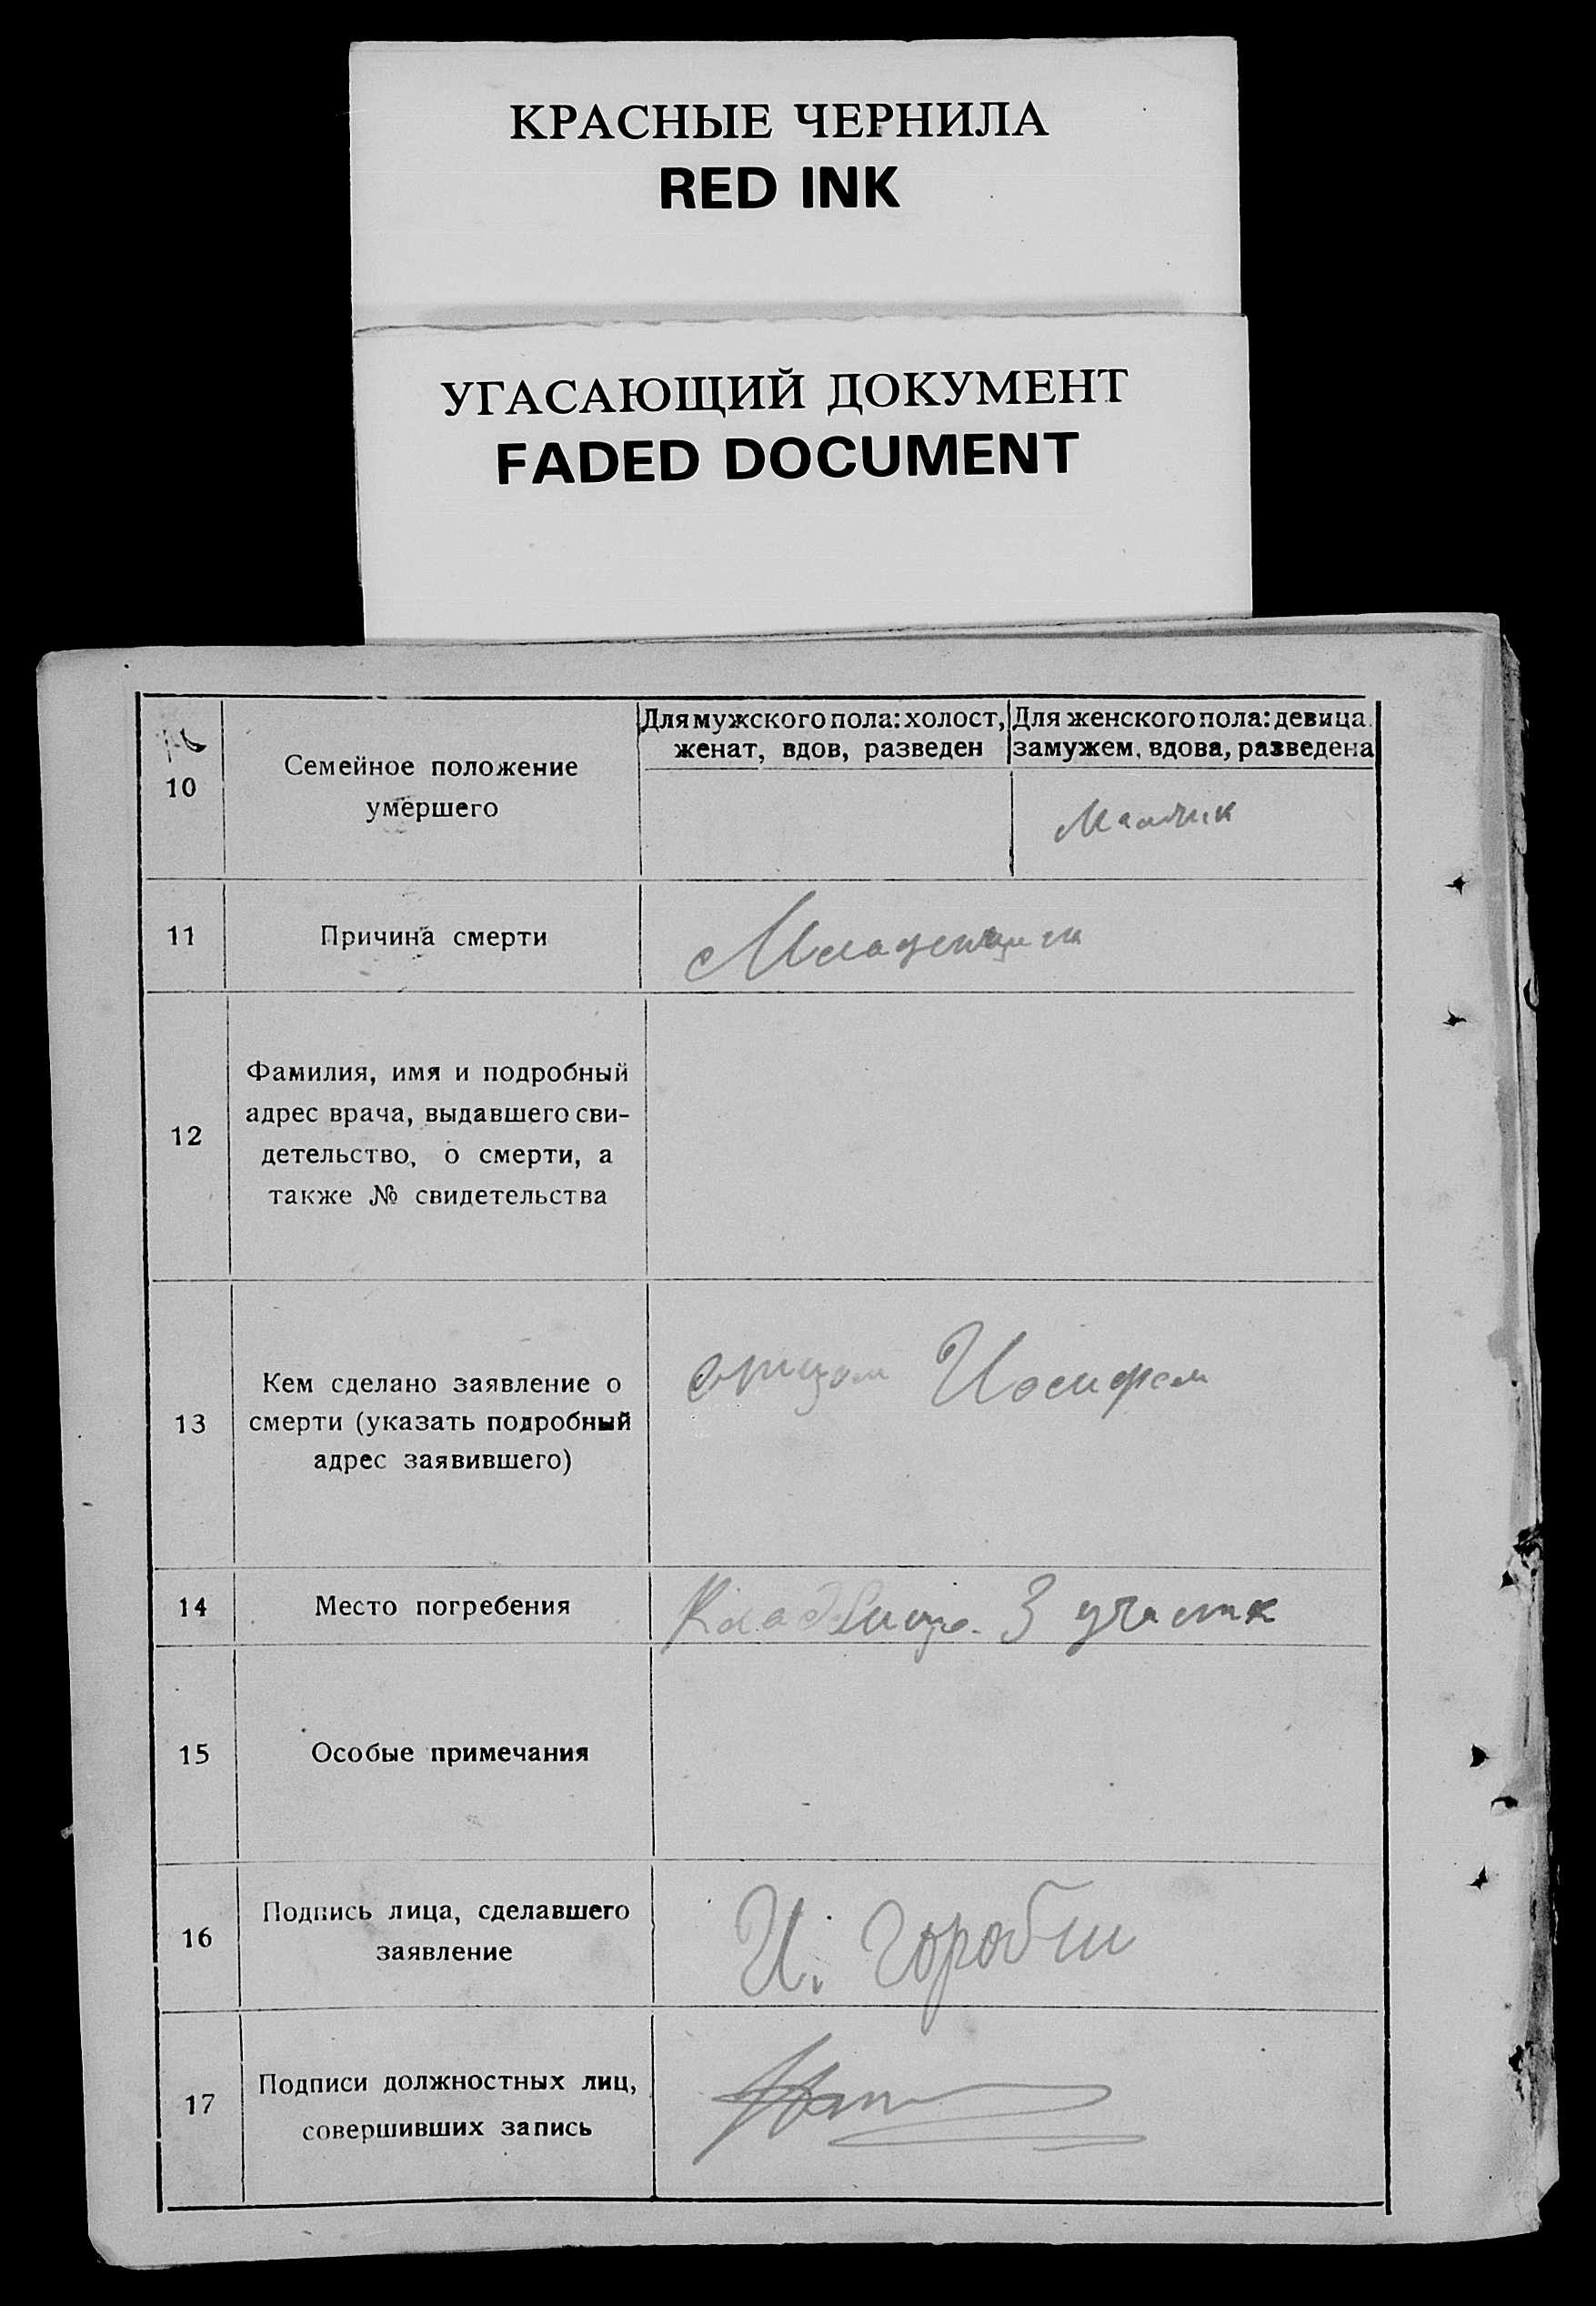 КРАСНЫЕ ЧЕРНИЛА
RED INK
УГАСАЮЩИЙ ДОКУМЕНТ
FADED DOCUMENT
10
Семейное положение
умершего
Для мужского пола: холост,
женат, вдов, разведен
Для женского пола: девица.
замужем, вдова, разведена
11
Причина смерти
12
Фамилия, имя и подробный
адрес врача, выдавшего сви-
детельство, о смерти, а
также № свидетельства
13
Кем сделано заявление о
смерти (указать подробный
адрес заявившего)
отцом Иосифом
14
Место погребения
Кладбище. 3 участк
15
Особые примечания
16
Подпись лица, сделавшего
заявление
И.
17
Подписи должностных лиц,
совершивших запись